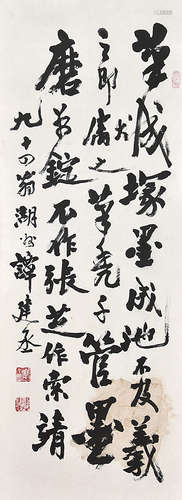 筆成塚墨成池不及羲
之即献之筆禿千管墨
磨万錠不作張芝作索靖
九十四翁湖州譚建丞